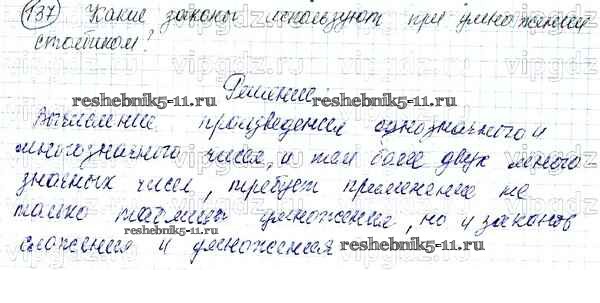 137 Какие законы используют при умножении
столбиком?
Решение:
reshebnik5-11.ru reshebnik5-11.ru
Вычисление произведения однозначного и
многозначного чисел, и тем более двух много-
значных чисел, требует применение не
только таблицы умножения, но и законов
сложения и умножения
reshebnik5-11.ru reshebnik5-11.ru